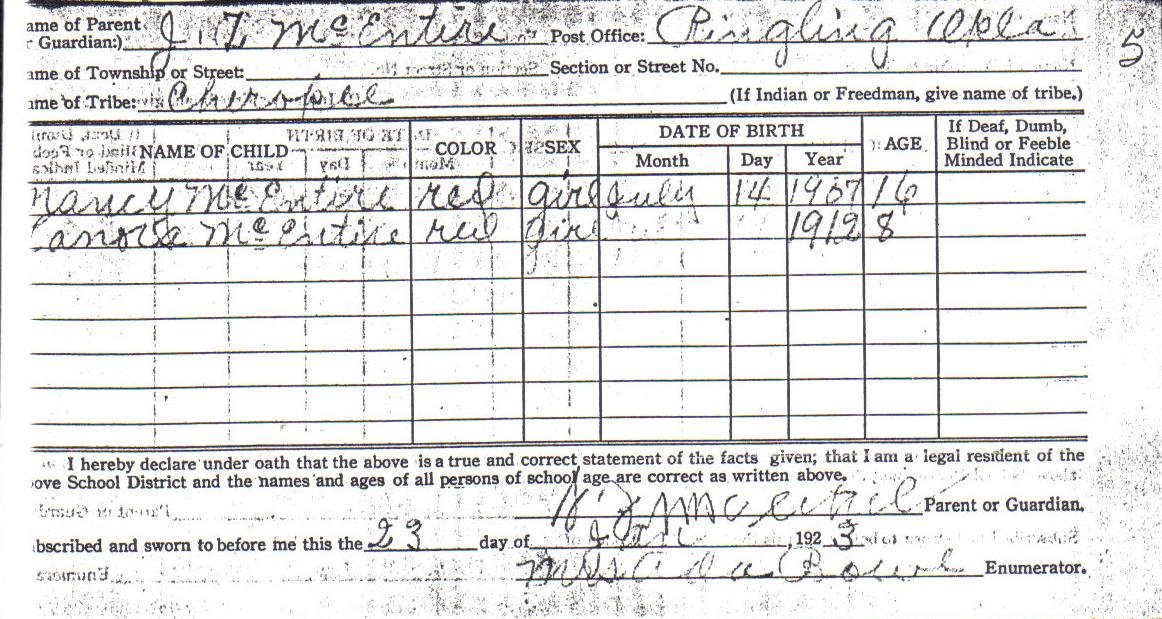 ame of Parent
r Guardian:) J. T. McEntire Post Office: Ringling Okla
5
ame of Township or Street: Section or Street No.
ame of Tribe: (If Indian or Freedman, give name of tribe.)
NAME OF CHILD COLOR SEX DATE OF BIRTH Month Day Year AGE If Deaf, Dumb, Blind or Feeble Minded Indicate
Nancy McEntire red girl July 14 1907 16
McEntire red girl 1912 8
I hereby declare under oath that the above is a true and correct statement of the facts given; that I am a legal resident of the
ove School District and the names and ages of all persons of school age are correct as written above.
Parent or Guardian.
bscribed and sworn to before me this the 23 day of Jan , 192 3
Mrs Ada Enumerator.